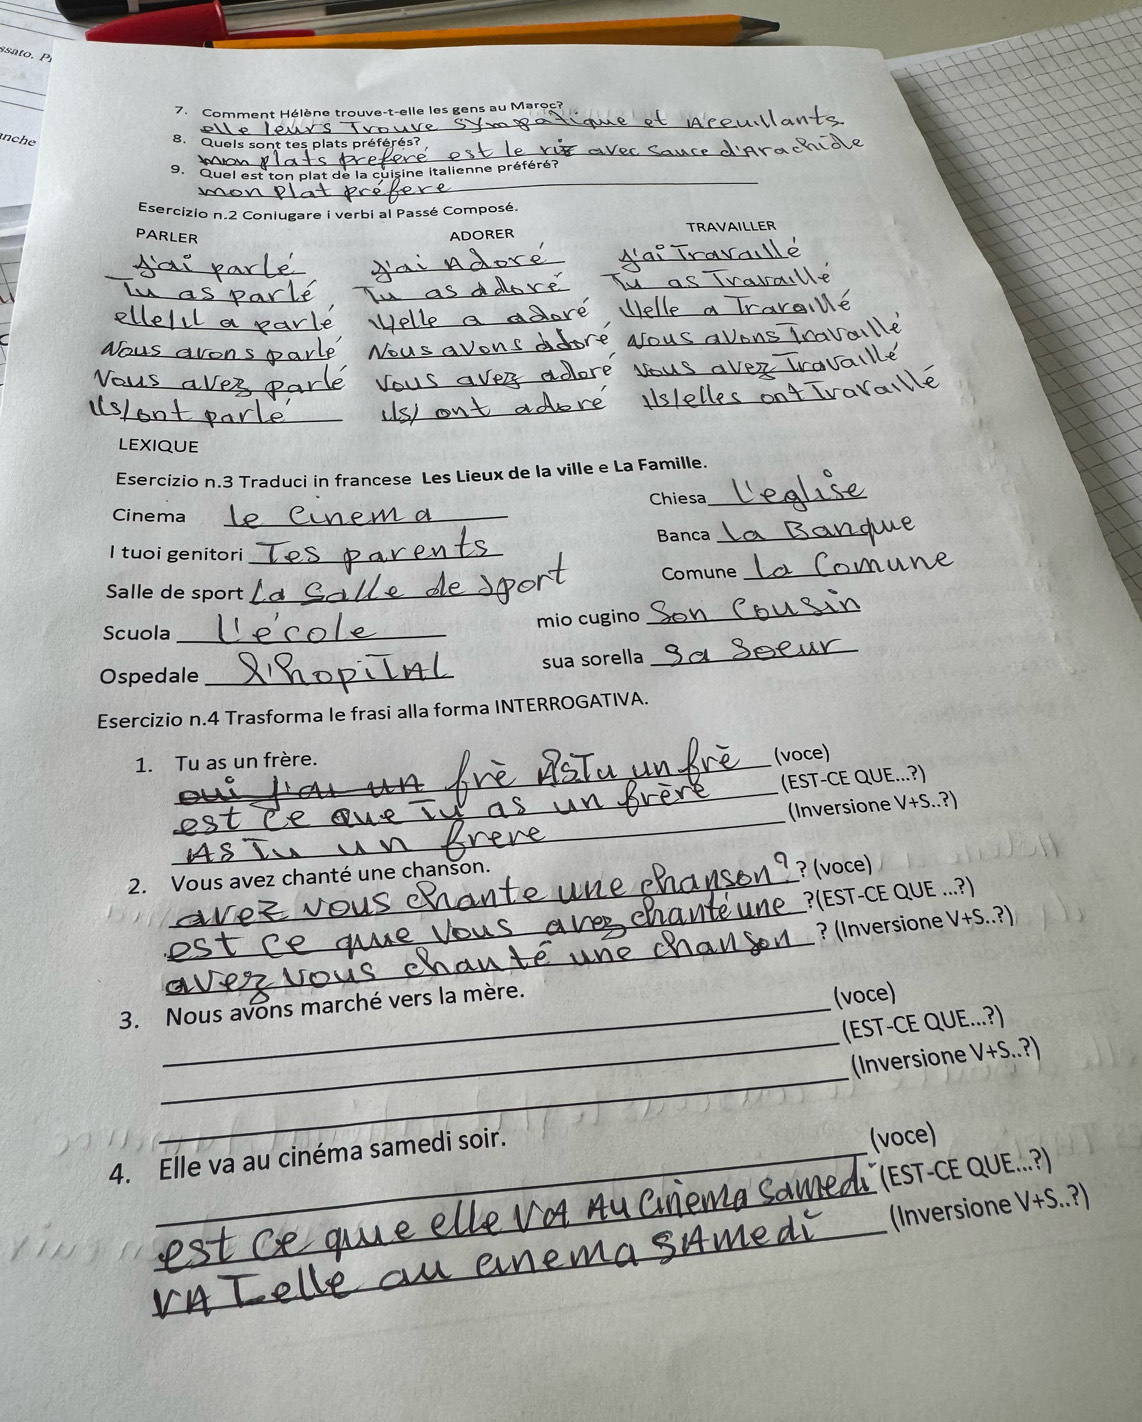 ssato. P
nche
7. Comment Hélène trouve-t-elle les gens au Maroc?
elle leurs Trouve sympatique et Aceuillants.
8. Quels sont tes plats préférés?
mon plats preferé est le riz avec sauce d'Arachide
9. Quel est ton plat de la cuisine italienne préféré?
mon plat préfere
Esercizio n.2 Coniugare i verbi al Passé Composé.
PARLER ADORER TRAVAILLER
j'ai parlé j'ai Adoré j'ai Travaillé
Tu as parlé Tu as adoré Tu as Travaillé
elle/il a parlé il/elle a adoré il/elle a Travaillé
Nous avons parlé Nous avons adoré Nous avons Travaillé
Vous avez parlé vous avez adoré vous avez Travaillé
ils/ont parlé ils/ ont adoré ils/elles ont Travaillé
LEXIQUE
Esercizio n.3 Traduci in francese Les Lieux de la ville e La Famille.
Cinema le cinema Chiesa L'eglise
I tuoi genitori Tes parents Banca La Banque
Salle de sport La Salle de sport Comune La Comune
Scuola l'école mio cugino Son cousin
Ospedale l'hopiTAL sua sorella Sa Soeur
Esercizio n.4 Trasforma le frasi alla forma INTERROGATIVA.
1. Tu as un frère.
oui j'ai un frè AsTu un frè (voce)
est ce que Tu as un frère (EST-CE QUE...?)
As Tu un frere (Inversione V+S..?)
2. Vous avez chanté une chanson.
avez vous chante une chanson? ? (voce)
est ce que vous avez chanté une ?(EST-CE QUE ...?)
avez vous chanté une chanson ? (Inversione V+S..?)
3. Nous avons marché vers la mère.
(voce)
(EST-CE QUE...?)
(Inversione V+S..?)
4. Elle va au cinéma samedi soir.
(voce)
est ce que elle VA Au Cinema samedi (EST-CE QUE...?)
VA T-elle au cinema SAmedi (Inversione V+S..?)